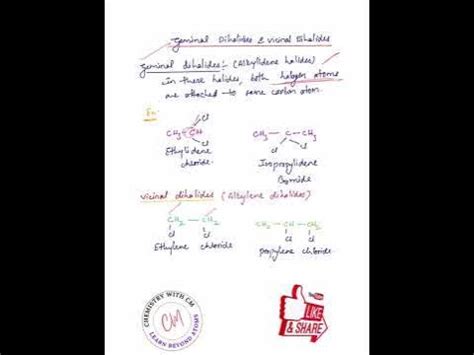 Geminal Dihalides & Vicinal Dihalides
Geminal dihalides:- (Alkylidene halides)
in these halides, both halogen atoms
are attached to same carbon atom.
Ex:-
Cl
CH3-CH
Cl
Ethylidene
chloride.
CH3-C-CH3
Cl Cl
Isopropylidene
Bromide
Vicinal dihalides (Alkylene dihalides)
CH2-CH2
Cl Cl
Ethylene chloride
CH2-CH-CH3
Cl Cl
propylene chloride
CHEMISTRY WITH CM
CM
LEARN BEYOND ATOMS
You Tube
LIKE
& SHARE